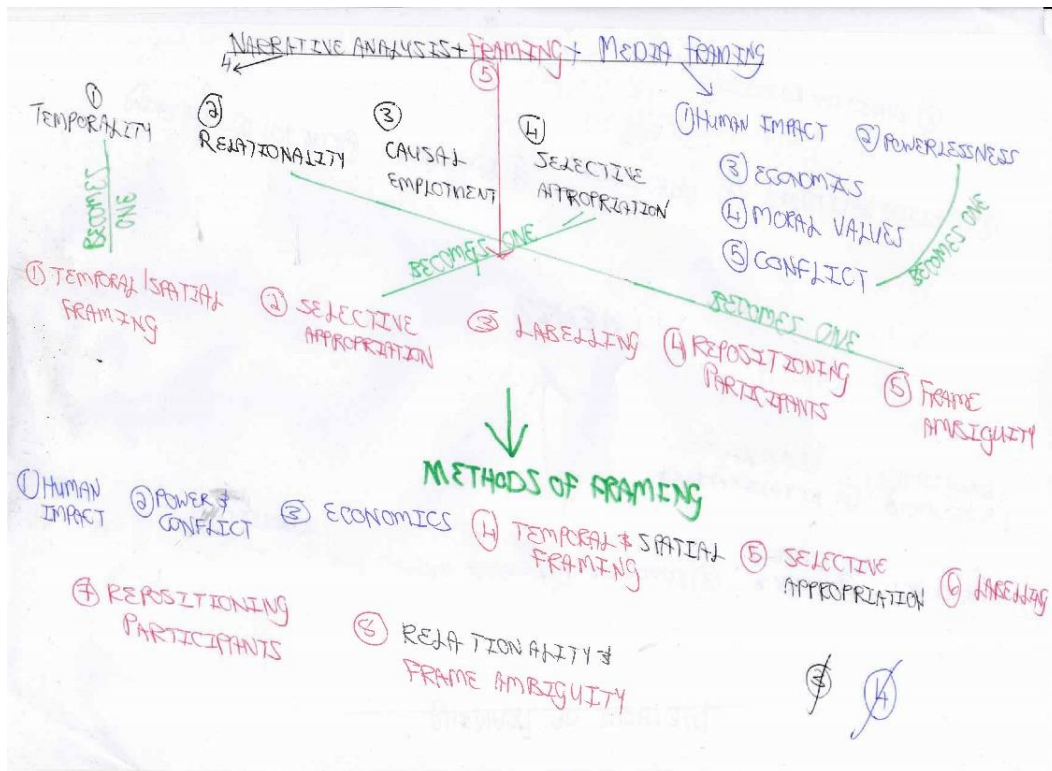 NARRATIVE ANALYSIS + FRAMING + MEDIA FRAMING
4
⑤
① TEMPORALITY
② RELATIONALITY
③ CAUSAL
EMPLOTMENT
④ SELECTIVE
APPROPRIATION
① HUMAN IMPACT
② POWERLESSNESS
③ ECONOMICS
④ MORAL VALUES
⑤ CONFLICT
BECOMES
ONE
BECOMES ONE
BECOMES ONE
BECOMES ONE
① TEMPORAL/SPATIAL
FRAMING
② SELECTIVE
APPROPRIATION
③ LABELLING
④ REPOSITIONING
PARTICIPANTS
⑤ FRAME
AMBIGUITY
METHODS OF FRAMING
① HUMAN
IMPACT
② POWER &
CONFLICT
③ ECONOMICS
④ TEMPORAL & SPATIAL
FRAMING
⑤ SELECTIVE
APPROPRIATION
⑥ LABELLING
⑦ REPOSITIONING
PARTICIPANTS
⑧ RELATIONALITY &
FRAME AMBIGUITY
③
④